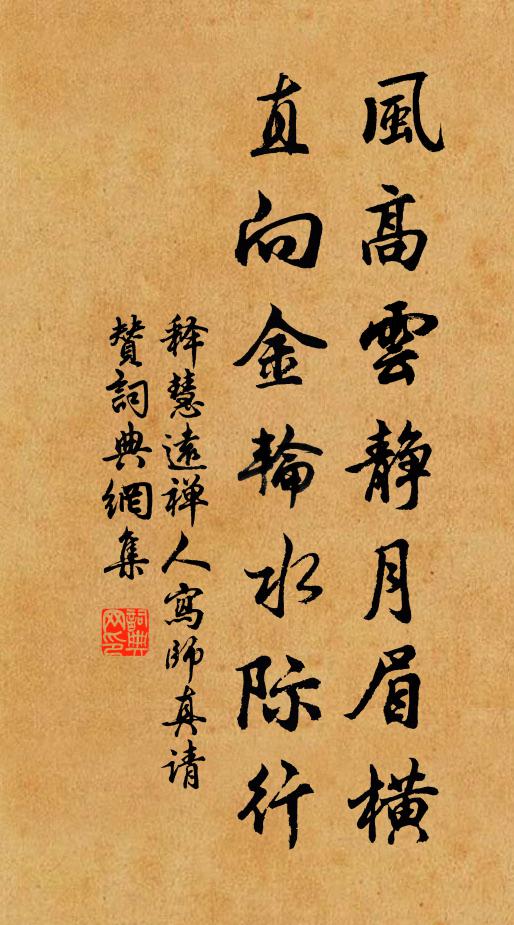 風高雲静月眉橫
直向金輪水际行
释慧遠禅人寫師真请
贊詞典網集
詞典
网印